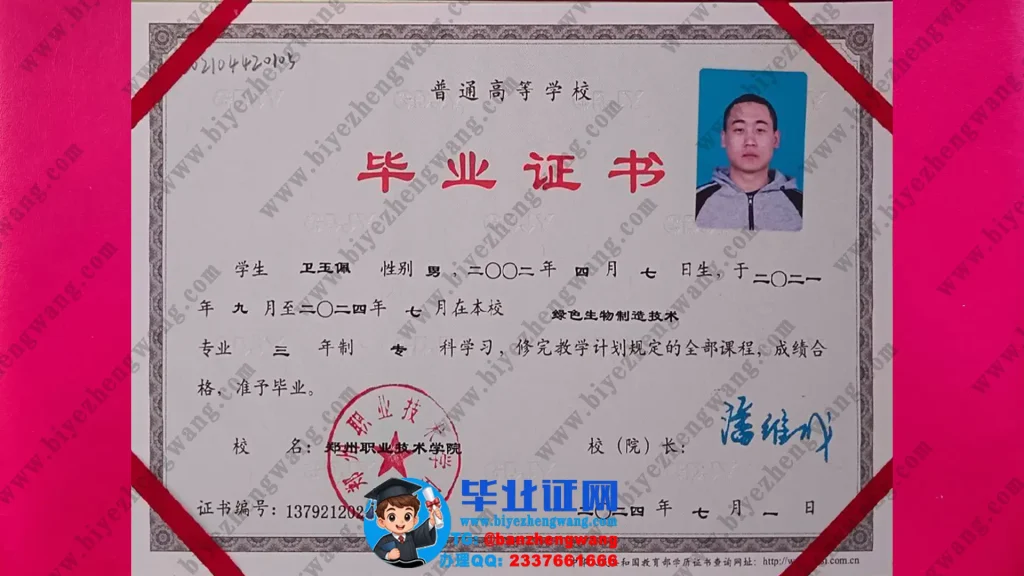 02104420105
普通高等学校
毕业证书
学生 卫玉佩 性别 男，二〇〇二年 四 月 七 日生，于二〇二一
年 九 月至二〇二四年 七 月在本校 绿色生物制造技术
专业 三 年制 专 科学习，修完教学计划规定的全部课程，成绩合
格，准予毕业。
校 名：郑州职业技术学院 校（院）长：潘维成
证书编号：137921202
二〇二四 年 七 月 一 日
毕业证网
www.biyezhengwang.com
TG: @banzhengwang
办理QQ: 2337661666
和国教育部学历证书查询网址：http://www.
www.biyezhengwang.com